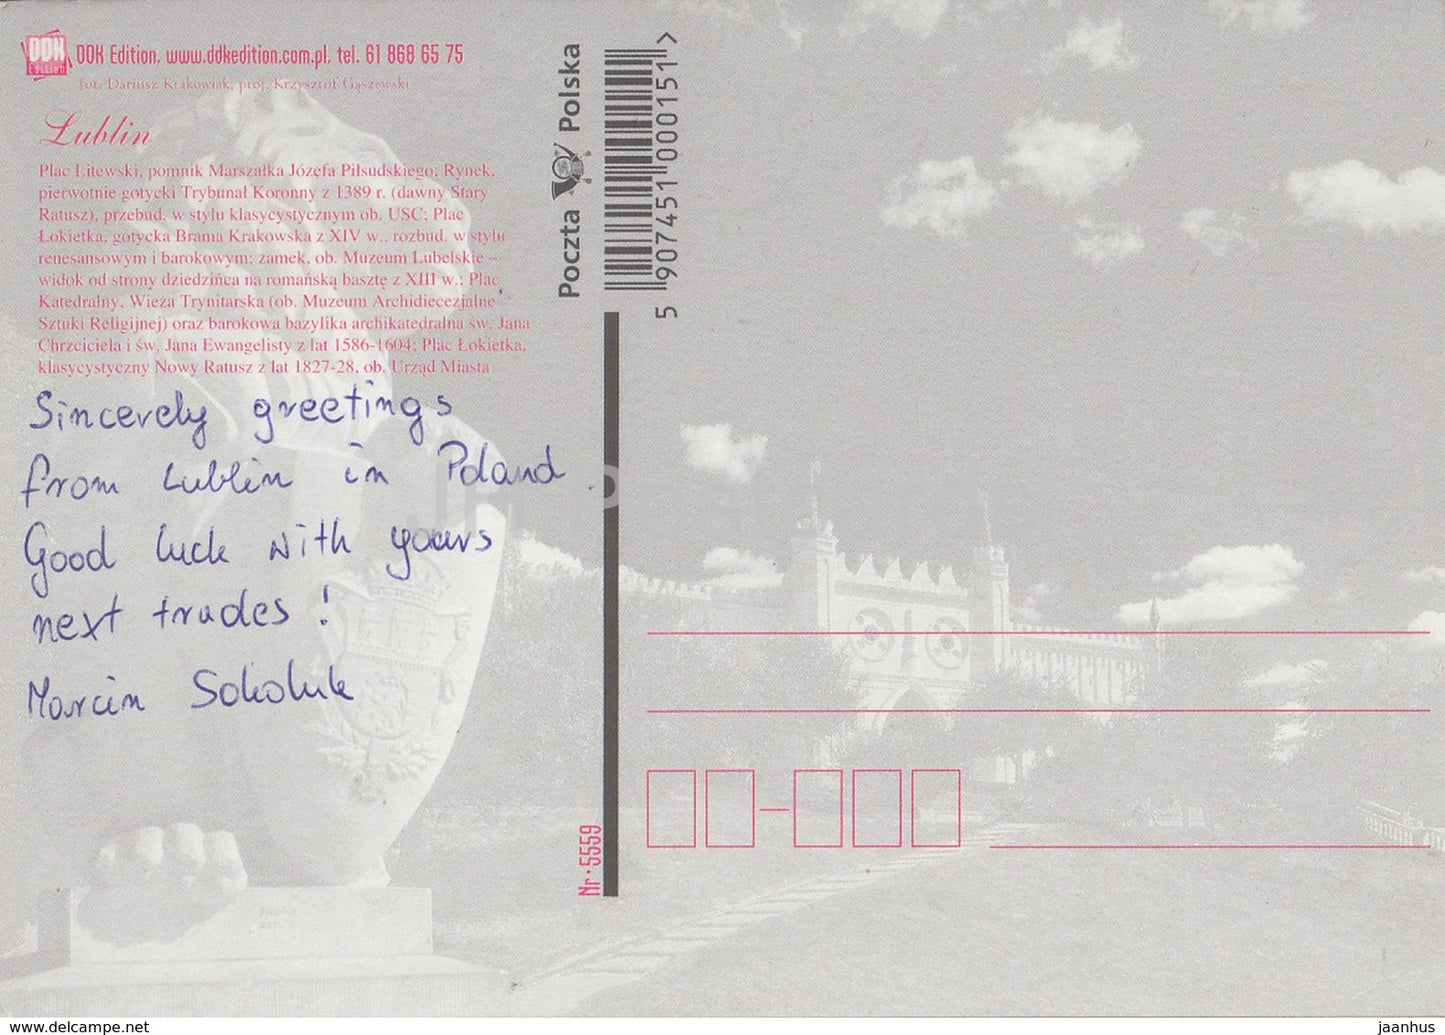 DDK Edition
DDK Edition, www.ddkedition.com.pl, tel. 61 868 65 75
fot. Dariusz Krakowiak, proj. Krzysztof Gąszewski
Lublin
Plac Litewski, pomnik Marszałka Józefa Piłsudskiego; Rynek,
pierwotnie gotycki Trybunał Koronny z 1389 r. (dawny Stary
Ratusz), przebud. w stylu klasycystycznym ob. USC; Plac
Łokietka, gotycka Brama Krakowska z XIV w., rozbud. w stylu
renesansowym i barokowym; zamek, ob. Muzeum Lubelskie –
widok od strony dziedzińca na romańską basztę z XIII w.; Plac
Katedralny, Wieża Trynitarska (ob. Muzeum Archidiecezjalne
Sztuki Religijnej) oraz barokowa bazylika archikatedralna św. Jana
Chrzciciela i św. Jana Ewangelisty z lat 1586-1604; Plac Łokietka,
klasycystyczny Nowy Ratusz z lat 1827-28, ob. Urząd Miasta
Sincerely greetings
from Lublin in Poland.
Good luck with yours
next trades!
Marcin Sokoluk
Poczta Polska
5 907451 000151 >
Nr · 5559
JH Postcards
www.delcampe.net
jaanhus